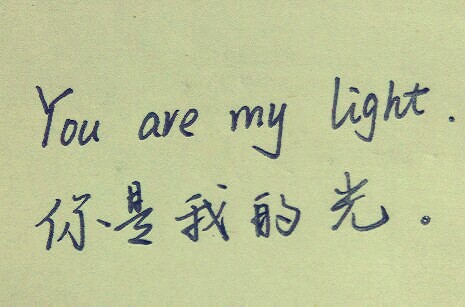 You are my light.
你是我的光。